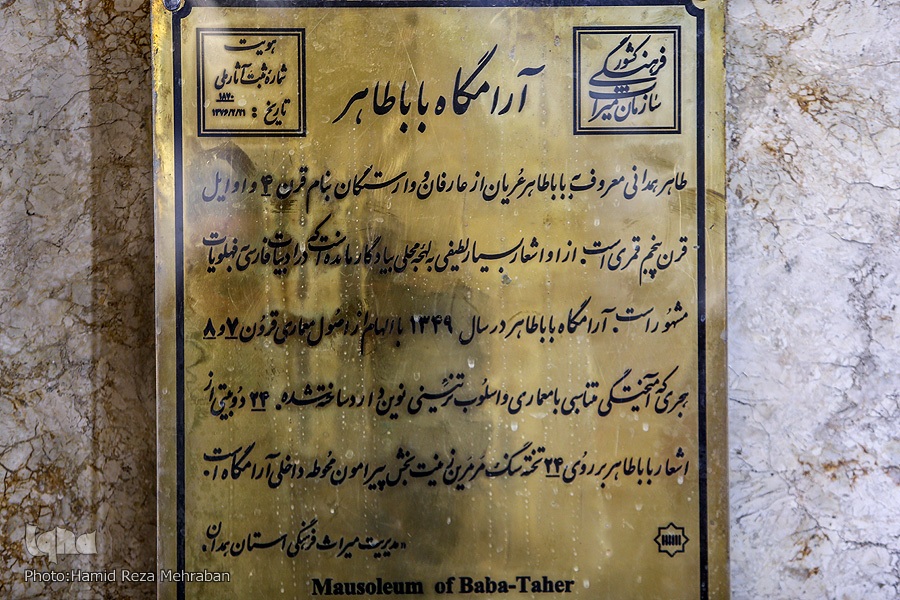 سازمان میراث
فرهنگی کشور
آرامگاه باباطاهر
هویت
شماره ثبت آثار ملی
۱۸۷۰
تاریخ : ۱۳۷۶/۲/۲۱
طاهر همدانی معروف به باباطاهر عریان از عارفان و وارستگان بنام قرن ۴ و اوایل
قرن پنجم قمری است. از او اشعار بسیار لطیفی به لهجه محلی بیادگار مانده است که در ادبیات فارسی فهلویات
مشهور است. آرامگاه باباطاهر در سال ۱۳۴۹ با الهام از اصول معماری قرون ۷ و ۸
هجری که آمیختگی متناسبی با معماری و اسلوب تزئینی نوین دارد ساخته شده. ۲۴ دوبیتی از
اشعار باباطاهر بر روی ۲۴ تخته سنگ مرمرین زینت بخش پیرامون محوطه داخلی آرامگاه است.
«مدیریت میراث فرهنگی استان همدان»
Mausoleum of Baba-Taher
iqna
Photo:Hamid Reza Mehraban